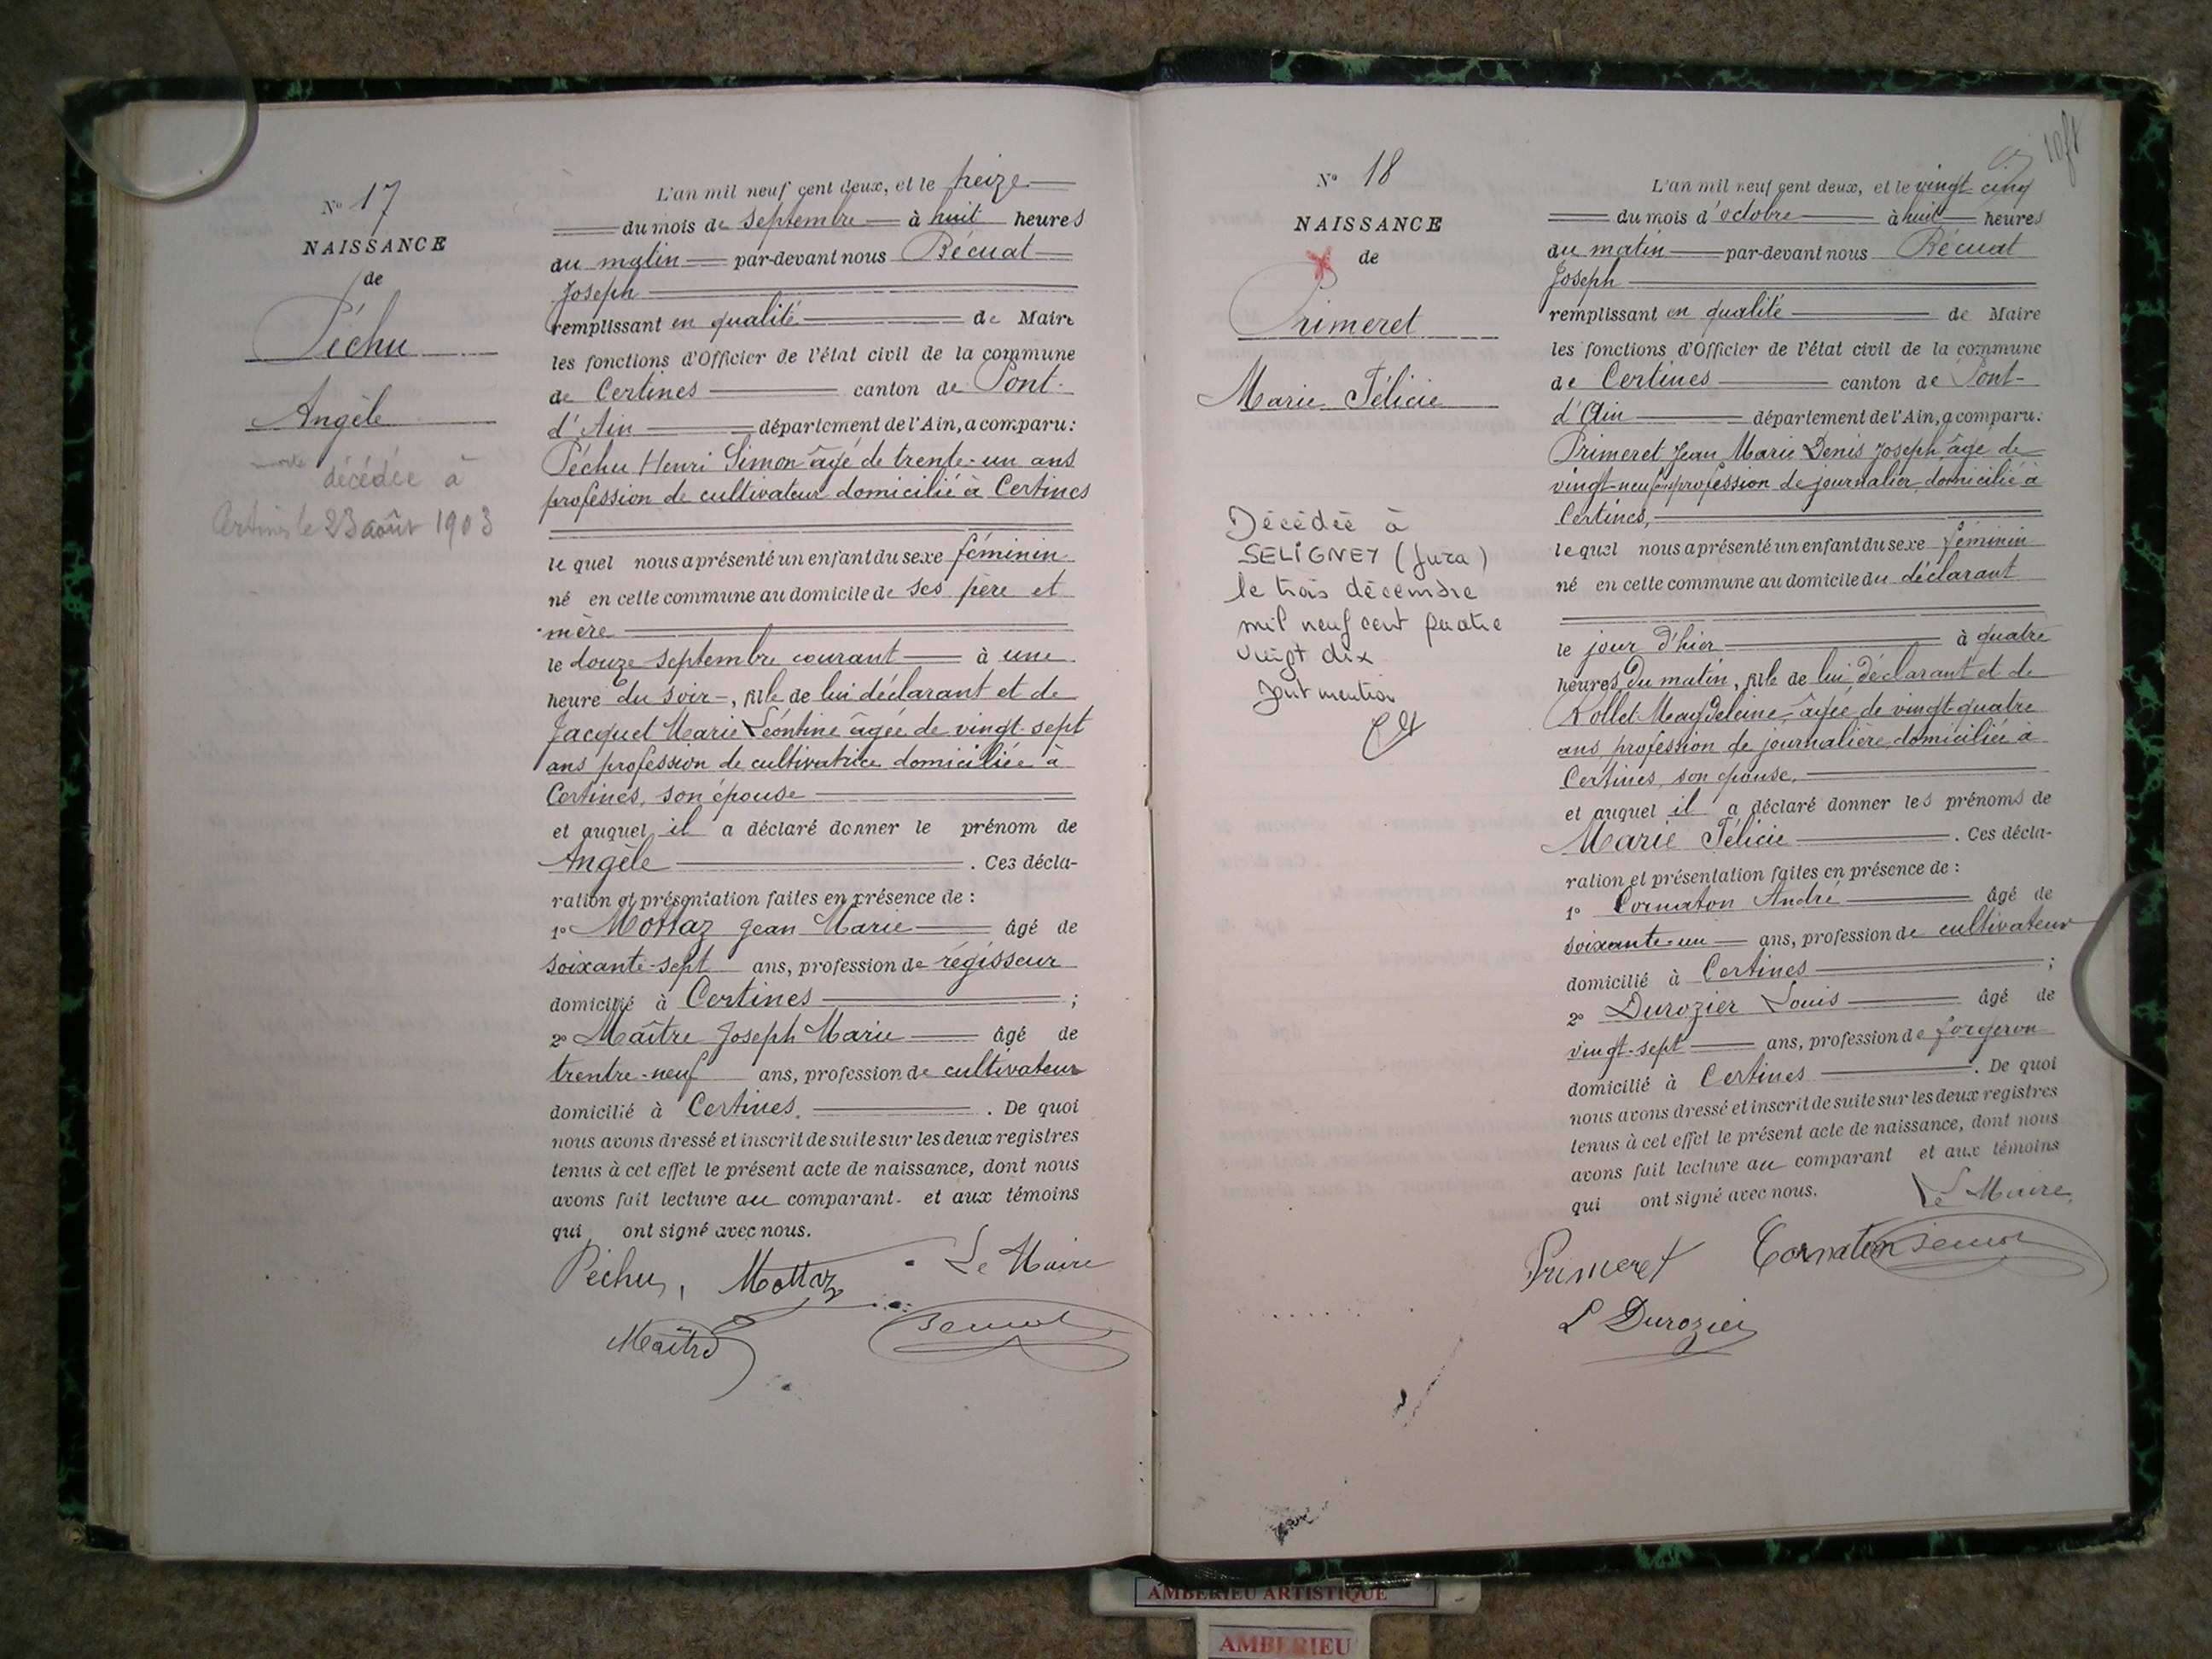 N° 17
NAISSANCE
de
Péchu
Angèle
décédée à
Certines le 23 août 1903
L'an mil neuf cent deux, et le treize
du mois de septembre à huit heures
du matin par-devant nous Bécuat
Joseph
remplissant en qualité de Maire
les fonctions d'Officier de l'état civil de la commune
de Certines canton de Pont-
d'Ain département de l'Ain, a comparu:
Péchu Henri Simon âgé de trente-un ans
profession de cultivateur domicilié à Certines
le quel nous a présenté un enfant du sexe féminin
né en cette commune au domicile de ses père et
mère
le douze septembre courant à une
heure du soir, fille de lui déclarant et de
Jacquet Marie Léontine âgée de vingt-sept
ans profession de cultivatrice domiciliée à
Certines, son épouse
et auquel il a déclaré donner le prénom de
Angèle . Ces décla-
ration et présentation faites en présence de :
1° Mottaz Jean Marie âgé de
soixante-sept ans, profession de régisseur
domicilié à Certines ;
2° Maître Joseph Marie âgé de
trentre-neuf ans, profession de cultivateur
domicilié à Certines. . De quoi
nous avons dressé et inscrit de suite sur les deux registres
tenus à cet effet le présent acte de naissance, dont nous
avons fait lecture au comparant et aux témoins
qui ont signé avec nous.
Péchu, Mottaz Le Maire
Maître Bécuat
N° 18
NAISSANCE
de
Primeret
Marie Félicie
Décédée à
SELIGNEY (Jura)
le trois décembre
mil neuf cent quatre
vingt dix
Dont mention
L'an mil neuf cent deux, et le vingt cinq
du mois d'octobre à huit heures
du matin par-devant nous Bécuat
Joseph
remplissant en qualité de Maire
les fonctions d'Officier de l'état civil de la commune
de Certines canton de Pont-
d'Ain département de l'Ain, a comparu:
Primeret Jean Marie Denis Joseph, âgé de
vingt-neuf ans profession de journalier domicilié à
Certines,
le quel nous a présenté un enfant du sexe féminin
né en cette commune au domicile du déclarant
le jour d'hier à quatre
heures du matin, fille de lui, déclarant et de
Rollet Magdeleine, âgée de vingt-quatre
ans profession de journalière domiciliée à
Certines, son épouse,
et auquel il a déclaré donner les prénoms de
Marie Félicie . Ces décla-
ration et présentation faites en présence de :
1° Cornaton André âgé de
soixante-un ans, profession de cultivateur
domicilié à Certines ;
2° Durozier Louis âgé de
vingt-sept ans, profession de forgeron
domicilié à Certines . De quoi
nous avons dressé et inscrit de suite sur les deux registres
tenus à cet effet le présent acte de naissance, dont nous
avons fait lecture au comparant et aux témoins
qui ont signé avec nous. Le Maire,
Primeret Cornaton Bécuat
L Durozier
AMBERIEU ARTISTIQUE
AMBERIEU